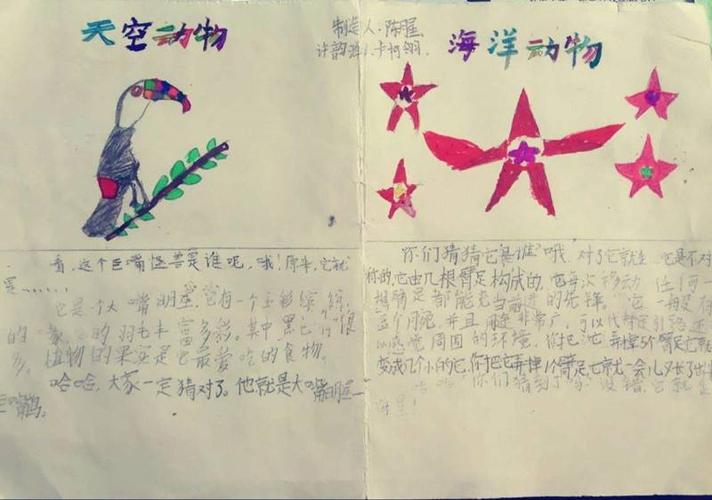 天空动物
制造人·陈
海洋动物
看,这个巨嘴怪兽是谁呢,哦!原来,它就
是……
它是个大嘴明星,它有一个五彩缤纷
的嘴,的羽毛丰富多彩,其中黑色的很
多。植物的果实是它最爱吃的食物。
哈哈,大家一定猜对了。他就是大嘴明星—
巨嘴鸟。
你们猜猜它是谁?哦,对了它就 它是不对
称的,它由几根臂足构成的,它每次移动 任何一
根臂足都能充当前进的先锋。它一般有
五个月宛,并且用途非常广,可以代替足引路还
以感觉周围的环境,你把它弄掉5个臂足它就
变成几个小的它,你把它弄掉1个臂足,它就一会儿又长了出
你们猜到了吗?没错,它就是
海星!